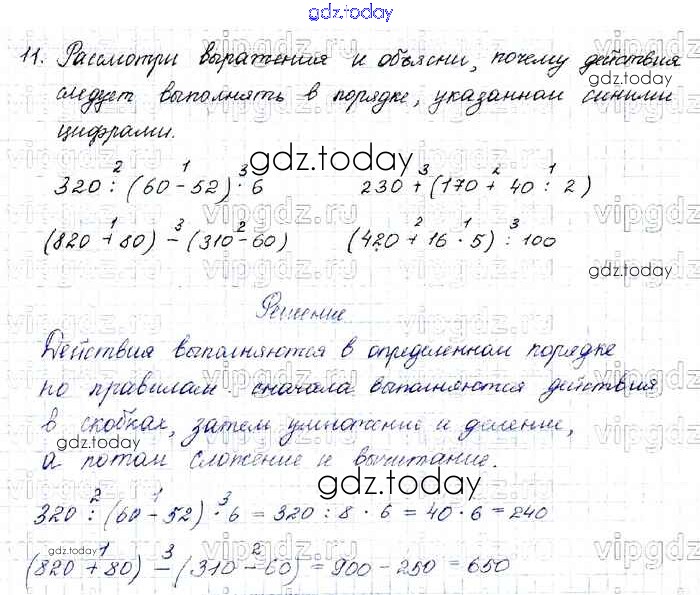 gdz.today
11. Рассмотри выражения и объясни, почему действия
следует выполнять в порядке, указанном синими
цифрами.
gdz.today
2 1 3 3 2 1
320 : (60 - 52) · 6 230 + (170 + 40 : 2)
1 3 2 2 1 3
(820 + 80) - (310 - 60) (420 + 16 · 5) : 100
gdz.today
Решение
Действия выполняются в определенном порядке
по правилам сначала выполняются действия
в скобках, затем умножение и деление,
gdz.today
а потом сложение и вычитание.
gdz.today
2 1 3
320 : (60 - 52) · 6 = 320 : 8 · 6 = 40 · 6 = 240
gdz.today
1 3 2
(820 + 80) - (310 - 60) = 900 - 250 = 650
vipgdz.ru